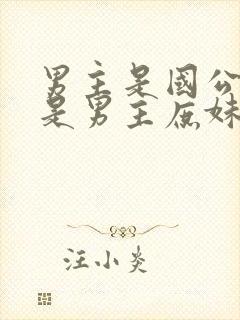 男主是國公
是男主庶妹
汪小炎